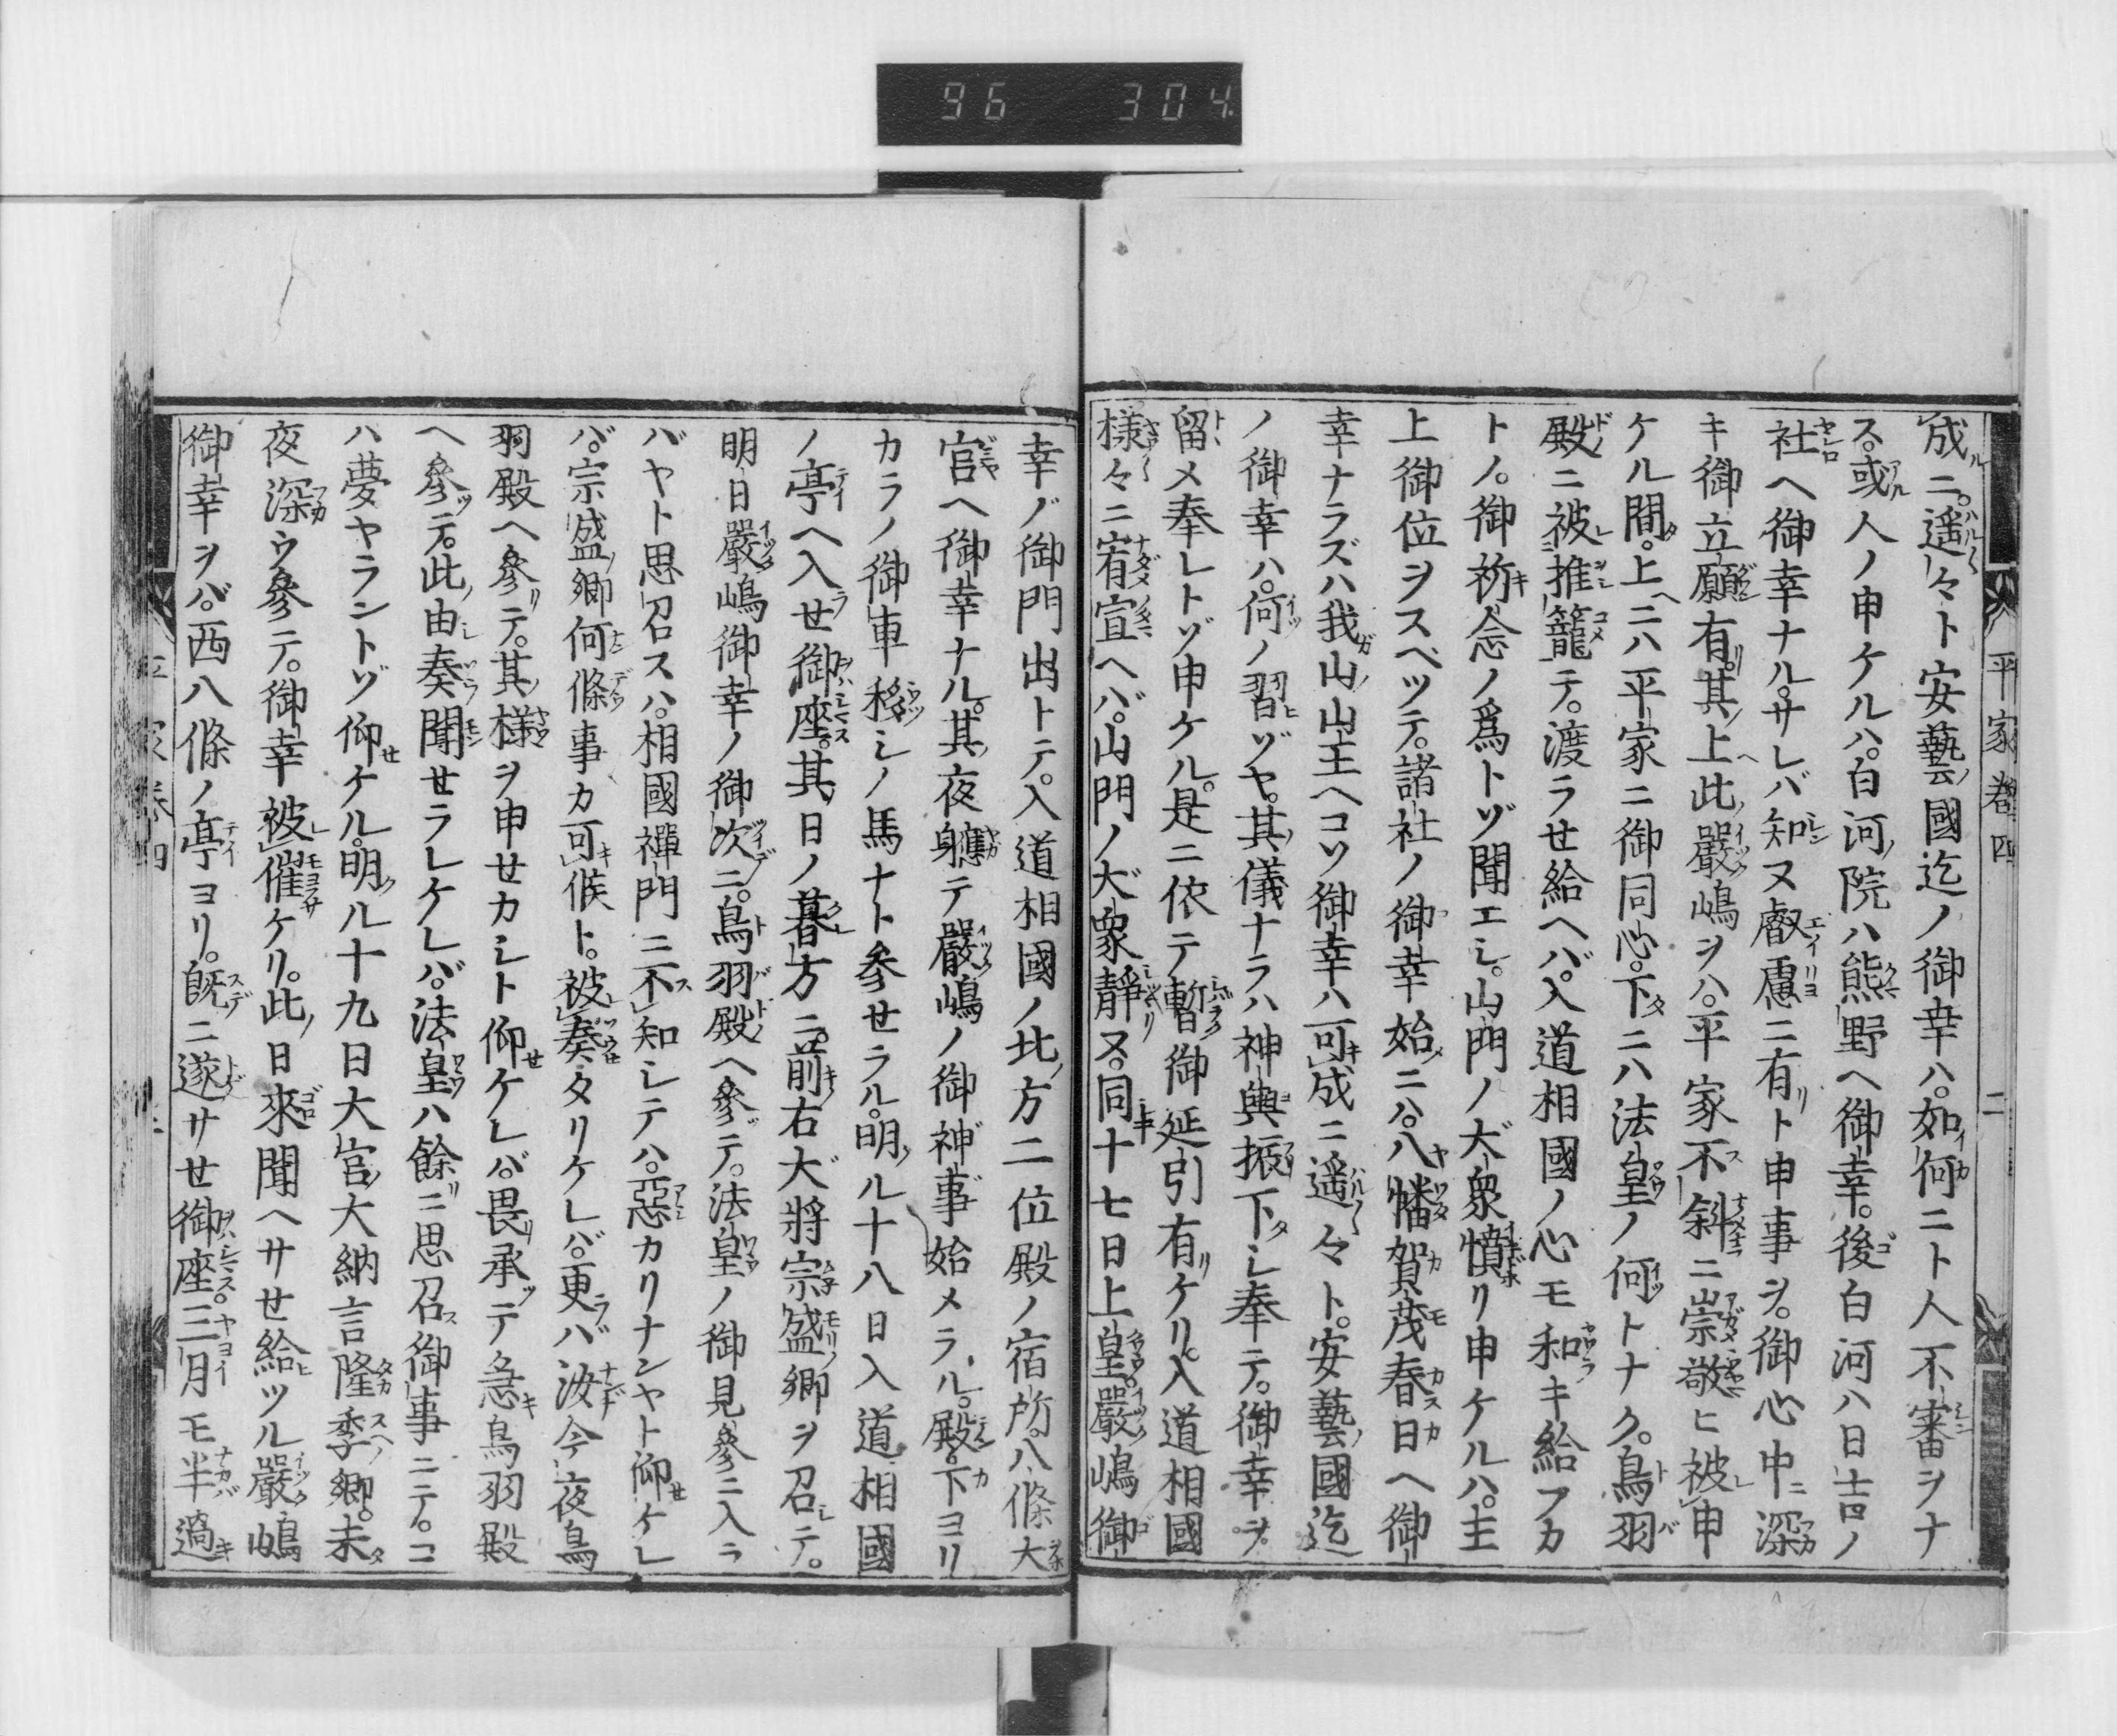 96 304
平家巻四 二
成ニ。遥々ト安藝國迄ノ御幸ハ。如何ニト人不審ヲナ
ス。或人ノ申ケルハ。白河院ハ熊野ヘ御幸。後白河ハ日吉ノ
社ヘ御幸ナル。サレバ知ヌ叡慮ニ有ト申事ヲ。御心中ニ深
キ御立願有。其上此嚴嶋ヲハ。平家不斜ニ崇敬ヒ被申
ケル間。上ニハ平家ニ御同心。下ニハ法皇ノ何トナク。鳥羽
殿ニ被推籠テ。渡ラせ給ヘバ。入道相國ノ心モ和キ給フカ
トノ。御祈念ノ爲トゾ聞エシ。山門ノ大衆憤リ申ケルハ。主
上御位ヲスベツテ。諸社ノ御幸始ニハ。八幡賀茂春日ヘ御
幸ナラズハ我山ノ山王ヘコソ御幸ハ可成ニ遥々ト。安藝國迄
ノ御幸ハ。何ノ習ゾヤ。其儀ナラハ神輿振下シ奉テ。御幸ヲ
留メ奉レトゾ申ケル。是ニ依テ暫御延引有ケリ。入道相國
様々ニ宥宣ヘバ。山門ノ大衆靜ヌ。同十七日上皇。嚴嶋御
幸ノ御門出トテ。入道相國ノ北方二位殿ノ宿所。八條大
宮ヘ御幸ナル。其夜軈テ嚴嶋ノ御神事始メラル。殿下ヨリ
カラノ御車移シノ馬ナト参せラル。明ル十八日入道相國
ノ亭ヘ入せ御座。其日ノ暮方ニ。前右大將宗盛卿ヲ召テ。
明日嚴嶋御幸ノ御次ニ。鳥羽殿ヘ參テ。法皇ノ御見參ニ入ラ
バヤト思召スハ。相國禪門ニ不知シテハ。惡カリナンヤト仰ケレ
バ。宗盛卿何條事カ可候ト。被奏タリケレバ。更バ汝今夜鳥
羽殿ヘ參テ。其様ヲ申せカシト仰ケレバ。畏承テ急鳥羽殿
ヘ參テ。此由奏聞せラレケレバ。法皇ハ餘ニ思召御事ニテ。コ
ハ夢ヤラントゾ仰ケル。明ル十九日大宮大納言隆季卿。未
夜深ウ參テ。御幸被催ケリ。此日來聞ヘサせ給ツル嚴嶋
御幸ヲバ。西八條ノ亭ヨリ。既ニ遂サせ御座。三月モ半過